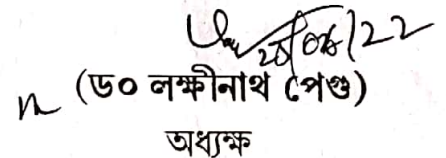 25/08/22
(ড০ লক্ষীনাথ পেগু)
অধ্যক্ষ